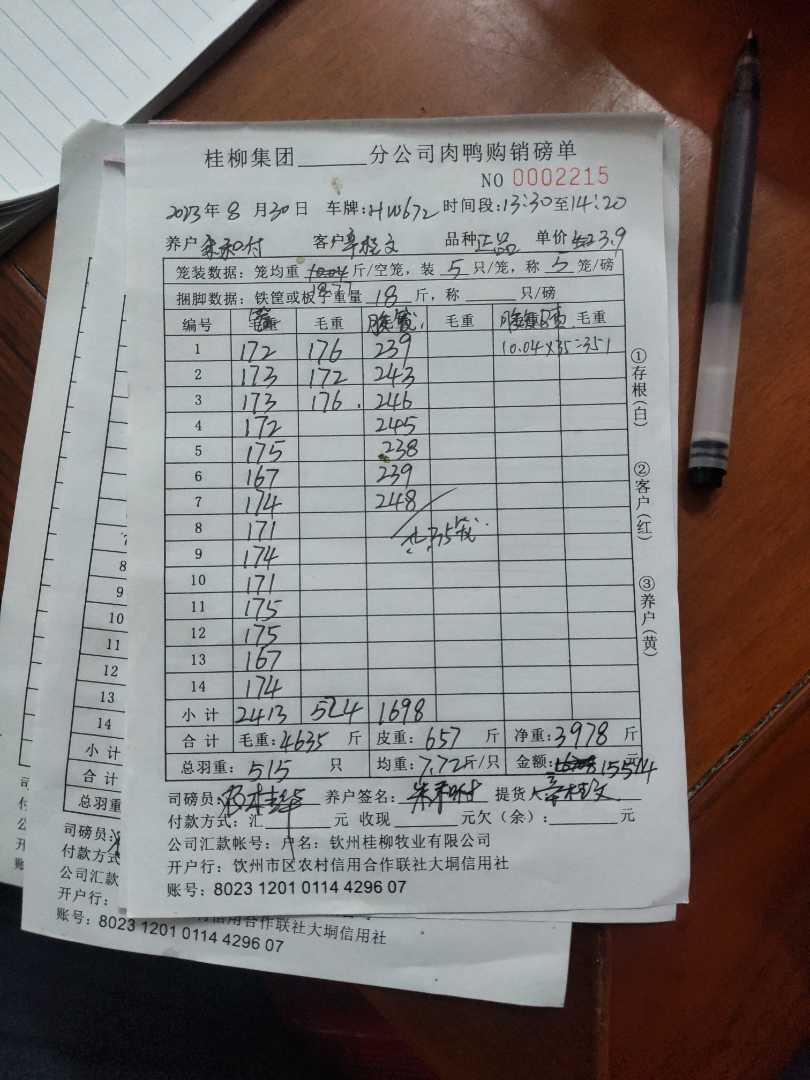 桂柳集团______分公司肉鸭购销磅单
NO 0002215
2023年 8 月30日 车牌:HW672 时间段:13:30至14:20
养户 客户 文 品种 正品 单价 23.9
笼装数据: 笼均重 10.04 斤/空笼, 装 5 只/笼, 称 5 笼/磅
捆脚数据: 铁筐或板子重量 18 斤, 称______只/磅
编号 毛重 毛重 毛重 毛重
1 172 176 239 10.04×35=351
2 173 172 243
3 173 176. 246
4 172 245
5 175 238
6 167 239
7 174 248
8 171 35
9 174
10 171
11 175
12 175
13 167
14 174
小计 2413 524 1698
合计 毛重:4635 斤 皮重: 657 斤 净重:3978 斤
总羽重: 515 只 均重:7.72斤/只 金额: 15514 元
司磅员: 养户签名: 提货人 文
付款方式: 汇______元 收现______元欠(余):______元
公司汇款帐号: 户名: 钦州桂柳牧业有限公司
开户行: 钦州市区农村信用合作联社大垌信用社
账号: 8023 1201 0114 4296 07
①存根(白)
②客户(红)
③养户(黄)
8
9
10
11
12
13
14
小计
合计
总羽重
司磅员:
付款方式
公司汇款
开户行:
信用合作联社大垌信用社
账号: 8023 1201 0114 4296 07